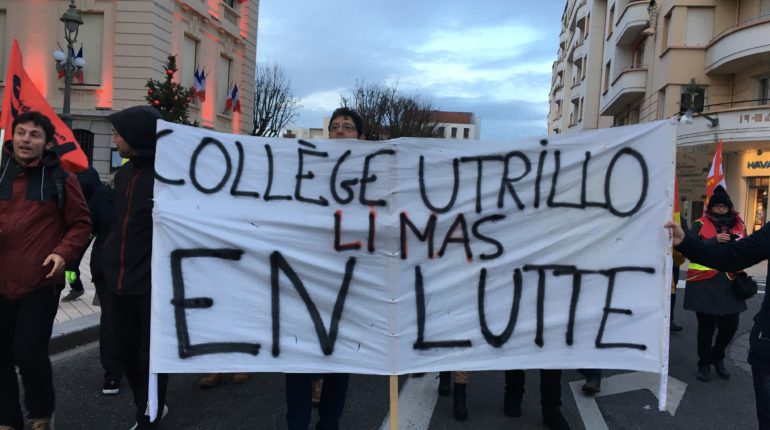 COLLÈGE UTRILLO
LIMAS
EN LUTTE
HAVA